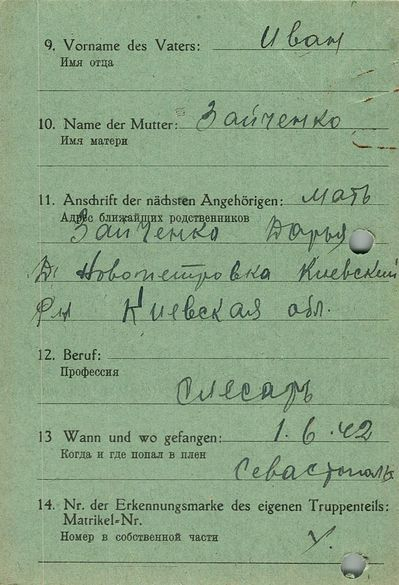 9. Vorname des Vaters: Иван
Имя отца
10. Name der Mutter: Зайченко
Имя матери
11. Anschrift der nächsten Angehörigen: мать
Адрес ближайших родственников
Зайченко Дарья
Д. Новопетровка Киевский
Рн Киевская обл.
12. Beruf:
Профессия
Слесарь
13 Wann und wo gefangen: 1.6.42
Когда и где попал в плен
Севастополь
14. Nr. der Erkennungsmarke des eigenen Truppenteils:
Matrikel-Nr.
Номер в собственной части